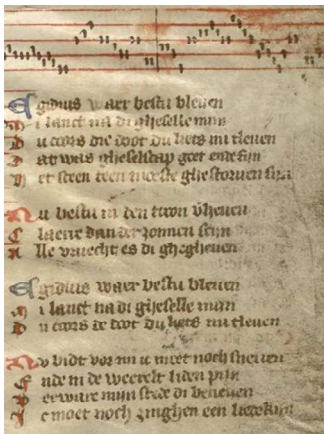 Egidius waer bestu bleven
Mi lanct na di gheselle mijn
Du coors die doot du liets mi tleven
Dat was gheselscap goet ende fijn
Het sceen teen moeste ghestorven sijn
Nu bestu in den troon verheven
Claerre dan der zonnen scijn
Alle vruecht es di ghegheven
Egidius waer bestu bleven
Mi lanct na di gheselle mijn
Du coors de doot du liets mi tleven
Nu bidt vor mi ic moet noch sneven
Ende in de weerelt liden pijn
Verware mijn stede di beneven
Ic moet noch zinghen een liedekijn